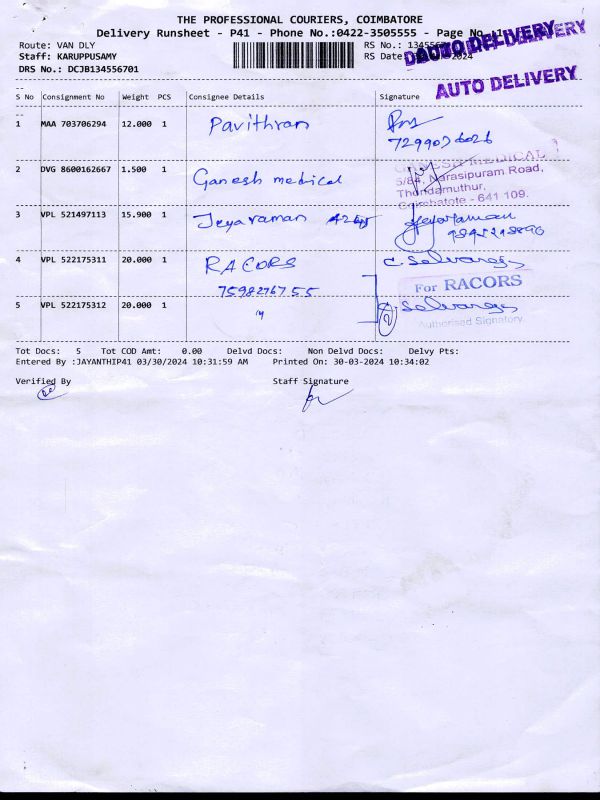 THE PROFESSIONAL COURIERS, COIMBATORE
Delivery Runsheet - P41 - Phone No.:0422-3505555 - Page No.
Route: VAN DLY
RS No.:
Staff: KARUPPUSAMY
RS Date: 2024
DRS No.: DCJB134556701
AUTO DELIVERY
AUTO DELIVERY
S No Consignment No Weight PCS Consignee Details Signature
1 MAA 703706294 12.000 1 Pavithran
7299036026
2 DVG 8600162667 1.500 1 Ganesh medical
GANESH MEDICAL
5/84, Narasipuram Road,
Thondamuthur,
Coimbatote - 641 109.
3 VPL 521497113 15.900 1 Jeyaraman Jeyaraman
4 VPL 522175311 20.000 1 RACORS C. Selvaraj
7598276755
For RACORS
5 VPL 522175312 20.000 1 C. Selvaraj
2
Authorised Signatory
Tot Docs: 5 Tot COD Amt: 0.00 Delvd Docs: Non Delvd Docs: Delvy Pts:
Entered By :JAYANTHIP41 03/30/2024 10:31:59 AM Printed On: 30-03-2024 10:34:02
Verified By Staff Signature